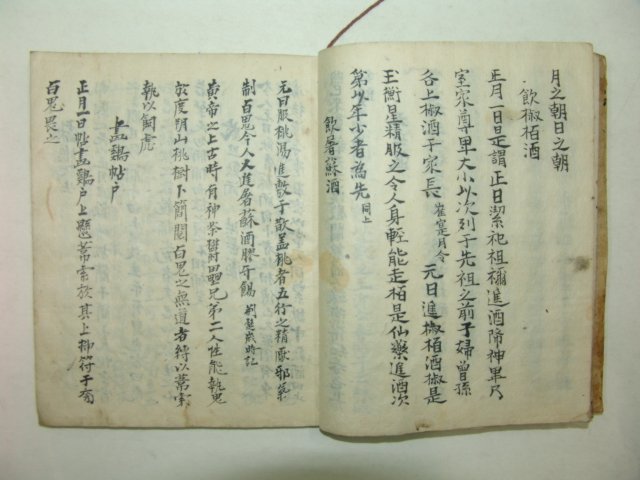 月之朝日之朝
飲椒栢酒
正月一日是謂正日潔祀祖禰進酒降神畢乃
室家尊卑大小以次列于先祖之前子婦曾孫
各上椒酒于家長 崔寔月令 元日進椒栢酒椒是
玉衡星精服之令人身輕能走栢是仙藥進酒次
第以年少者為先 同上
飲屠蘇酒
元日服桃湯進敷于散盖桃者五行之精厭邪氣
制百鬼今人又進屠蘇酒膠牙餳 荊楚歲時記
黃帝之上古時有神荼鬱壘兄弟二人性能執鬼
於度朔山桃樹下簡閱百鬼之無道者縛以葦索
執以飼虎
畫鷄帖戶
正月一日帖畫鷄戶上懸葦索於其上揷符于旁
百鬼畏之